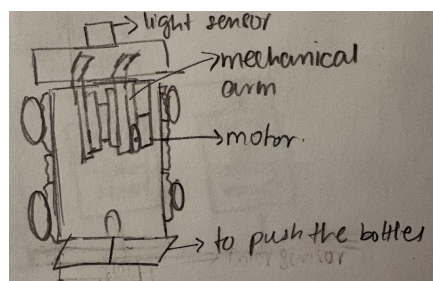 light sensor
mechanical
arm
motor.
to push the bottles